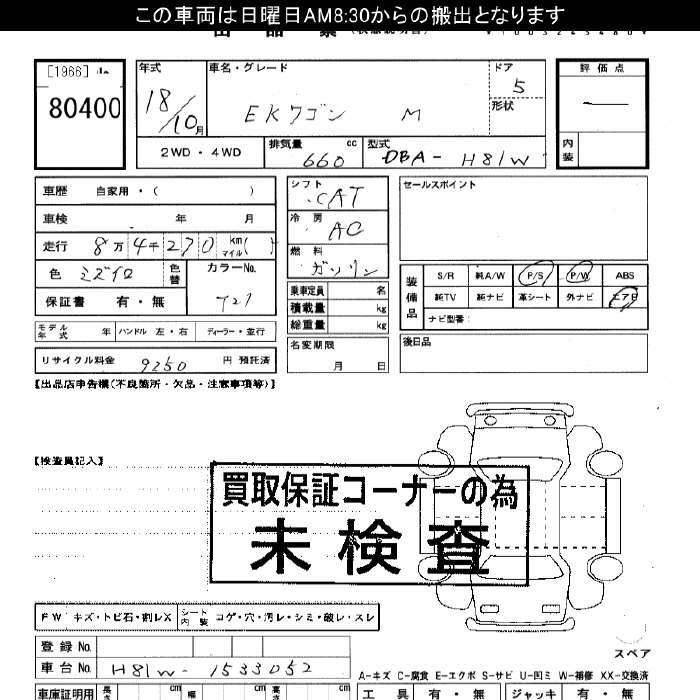 この車両は日曜日AM8:30からの搬出となります
出 品 票
[1966]
80400
年式
18/10月
車名・グレード
EKワゴン M
ドア
5
形状
評価点
内装
2WD・4WD
排気量 cc
660
型式
DBA-H81W
車歴 自家用・( )
車検 年 月
走行 8万4千270 km マイル( )
色 ミズイロ 色替
カラーNo.
T27
保証書 有・無
シフト
CAT
冷房
AC
燃料
ガソリン
乗車定員 名
積載量 kg
総重量 kg
セールスポイント
装備品
S/R 純A/W P/S P/W ABS
純TV 純ナビ 革シート 外ナビ エアB
ナビ型番:
モデル年式 年 ハンドル 左・右 ディーラー・並行
名変期限
月 日
後日品
リサイクル料金 9250 円 預託済
【出品店申告欄(不良箇所・欠品・注意事項等)】
【検査員記入】
買取保証コーナーの為
未検査
FW キズ・トビ石・割レX
シート内装 コゲ・穴・汚レ・シミ・破レ・スレ
登録No.
車台No. H81W-1533052
スペア
A-キズ C-腐食 E-エクボ S-サビ U-凹ミ W-補修 XX-交換済
車庫証明用 長さ cm 幅 cm 高さ cm
工具 有・無 ジャッキ 有・無